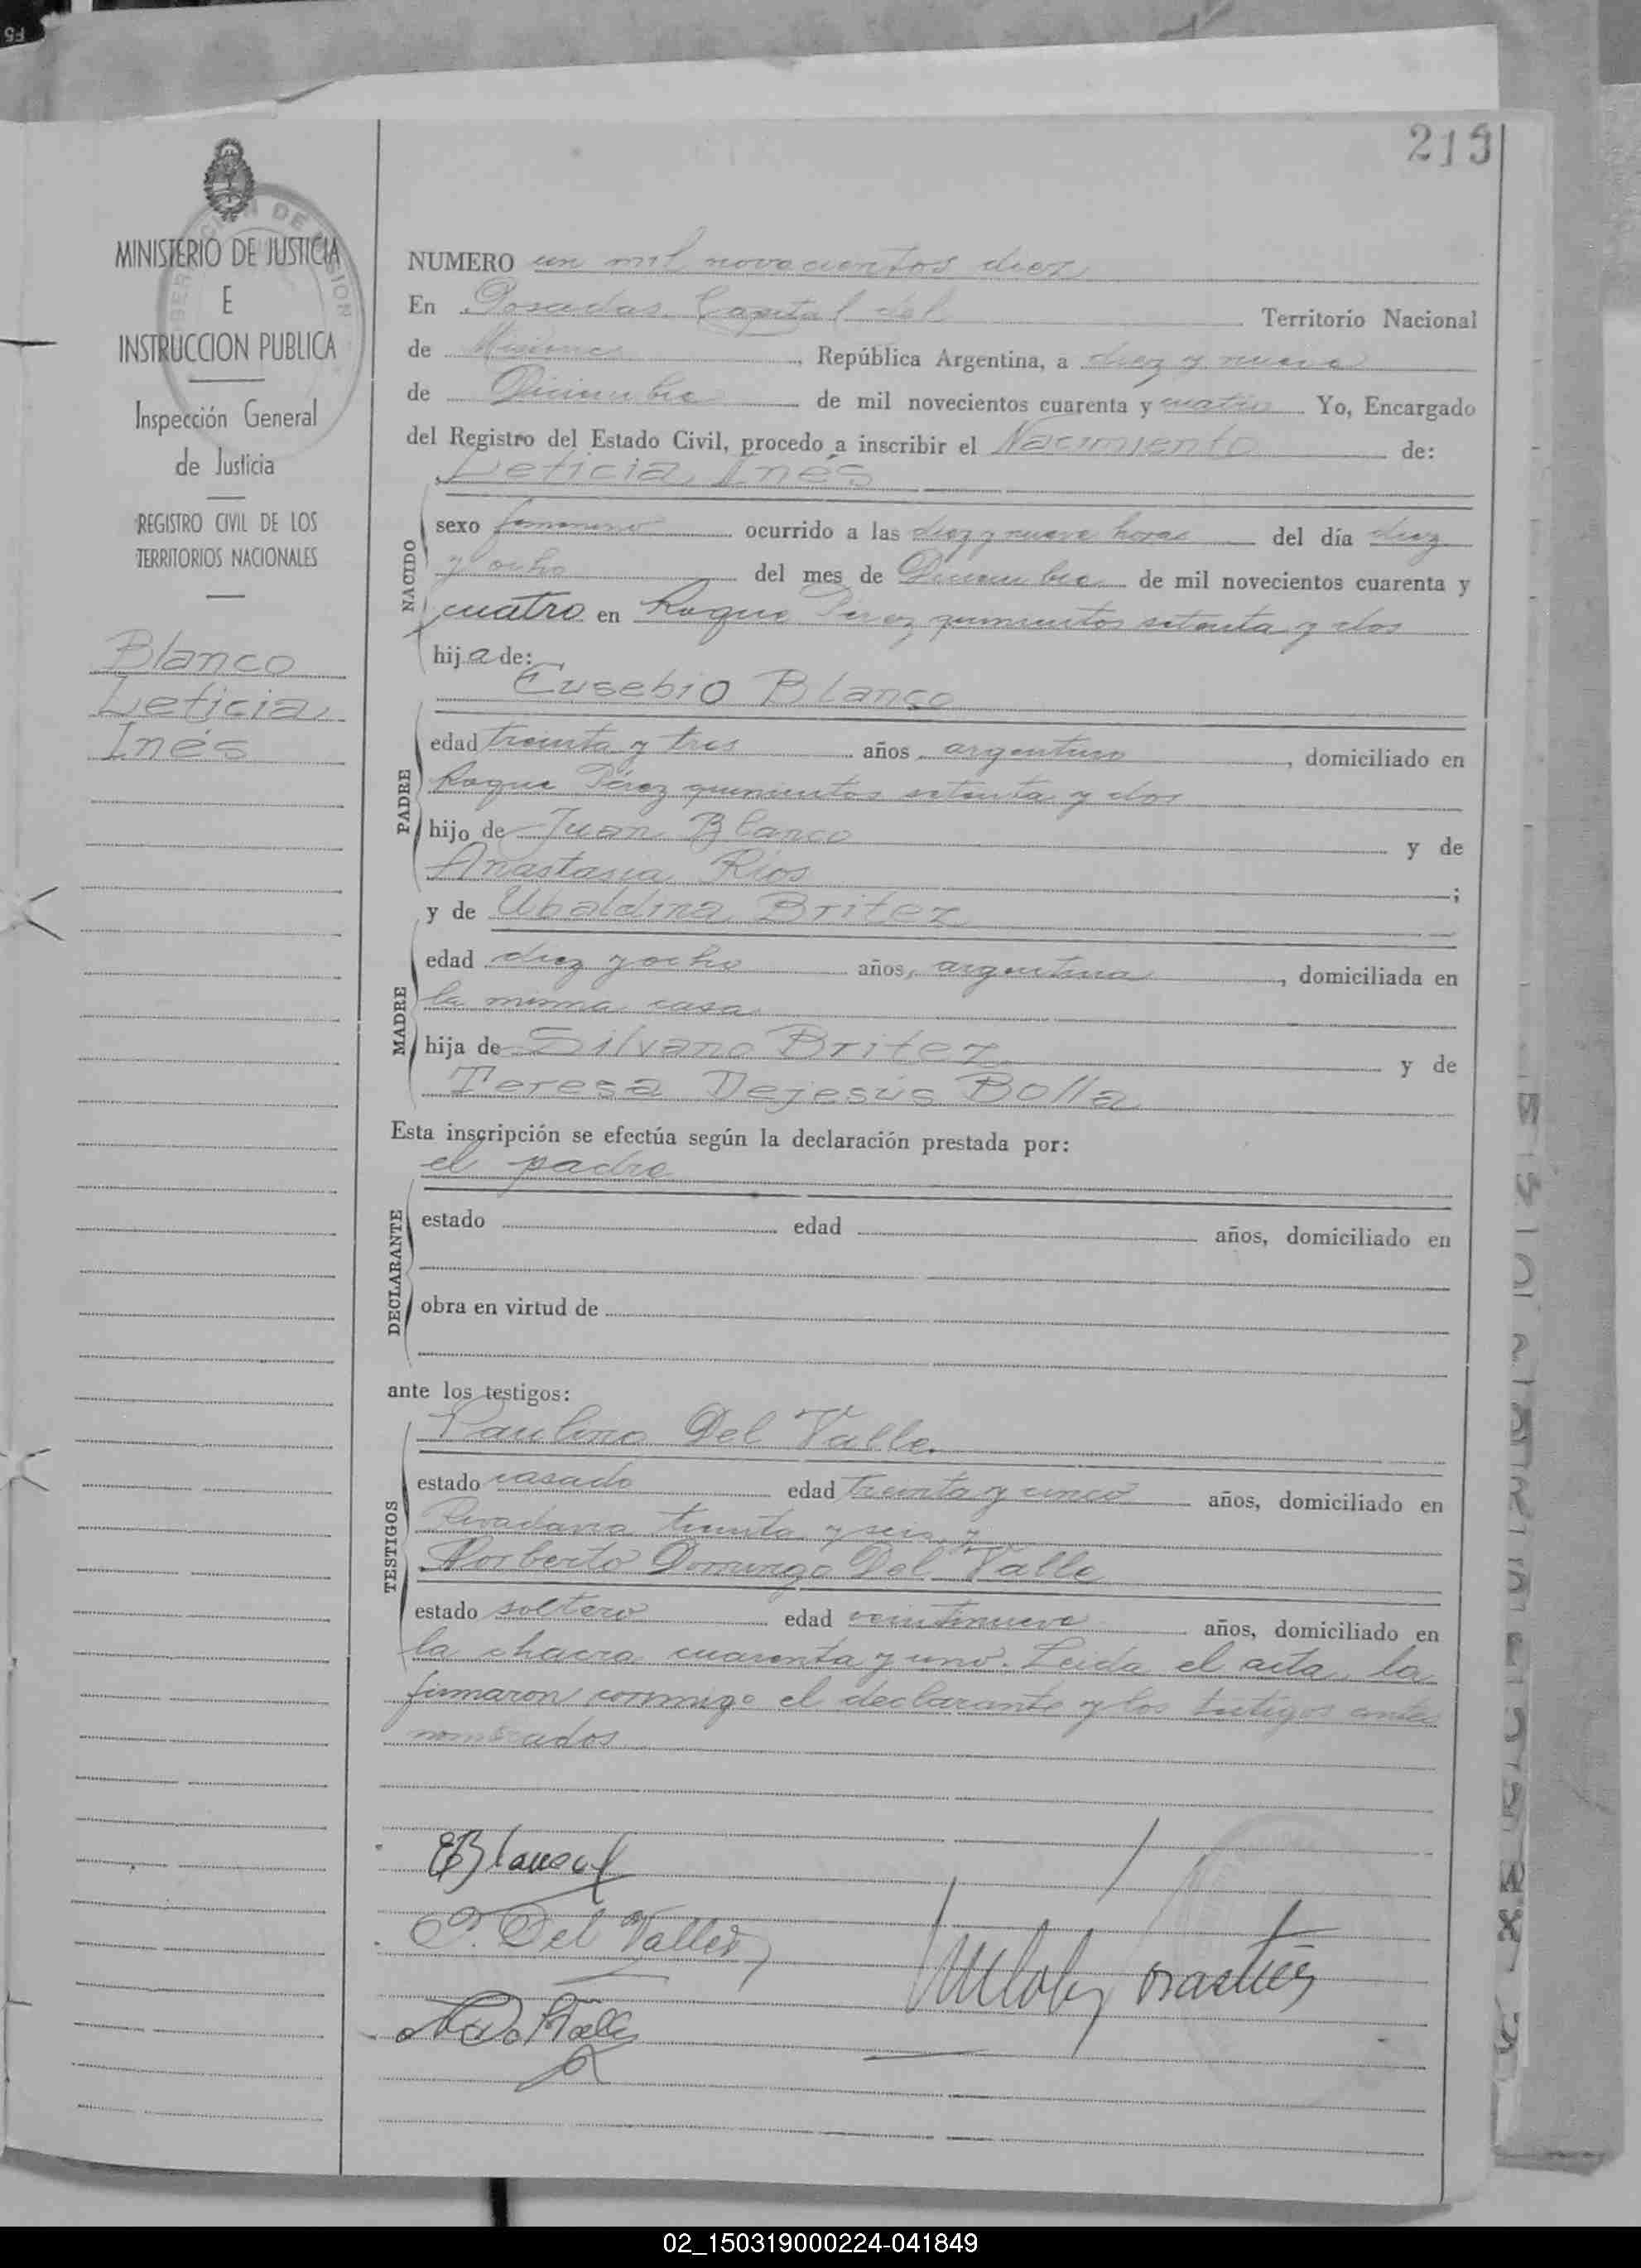 219
MINISTERIO DE JUSTICIA
E
INSTRUCCION PUBLICA
Inspección General
de Justicia
REGISTRO CIVIL DE LOS
TERRITORIOS NACIONALES
Blanco
Leticia
Inés
NUMERO un mil novecientos diez
En Posadas, Capital del Territorio Nacional
de Misiones, República Argentina, a diez y nueve
de Diciembre de mil novecientos cuarenta y cuatro Yo, Encargado
del Registro del Estado Civil, procedo a inscribir el Nacimiento de:
Leticia Inés
NACIDO
sexo femenino ocurrido a las diez y nueve horas del día diez
y ocho del mes de Diciembre de mil novecientos cuarenta y
cuatro en Roque Pérez quinientos setenta y dos
hija de:
Eusebio Blanco
PADRE
edad treinta y tres años argentino, domiciliado en
Roque Pérez quinientos setenta y dos
hijo de Juan Blanco y de
Anastasia Ríos;
y de Ubaldina Britez
MADRE
edad diez y ocho años, argentina, domiciliada en
la misma casa
hija de Silvano Britez y de
Teresa Dejesús Bolla
Esta inscripción se efectúa según la declaración prestada por:
el padre
DECLARANTE
estado edad años, domiciliado en
obra en virtud de
ante los testigos:
Paulino Del Valle
TESTIGOS
estado casado edad treinta y cinco años, domiciliado en
Rivadavia treinta y seis y
Norberto Domingo Del Valle
estado soltero edad veintinueve años, domiciliado en
la chacra cuarenta y uno. Leida el acta, la
firmaron conmigo el declarante y los testigos antes
nombrados
EBlanco
P. Del Valle
02_150319000224-041849